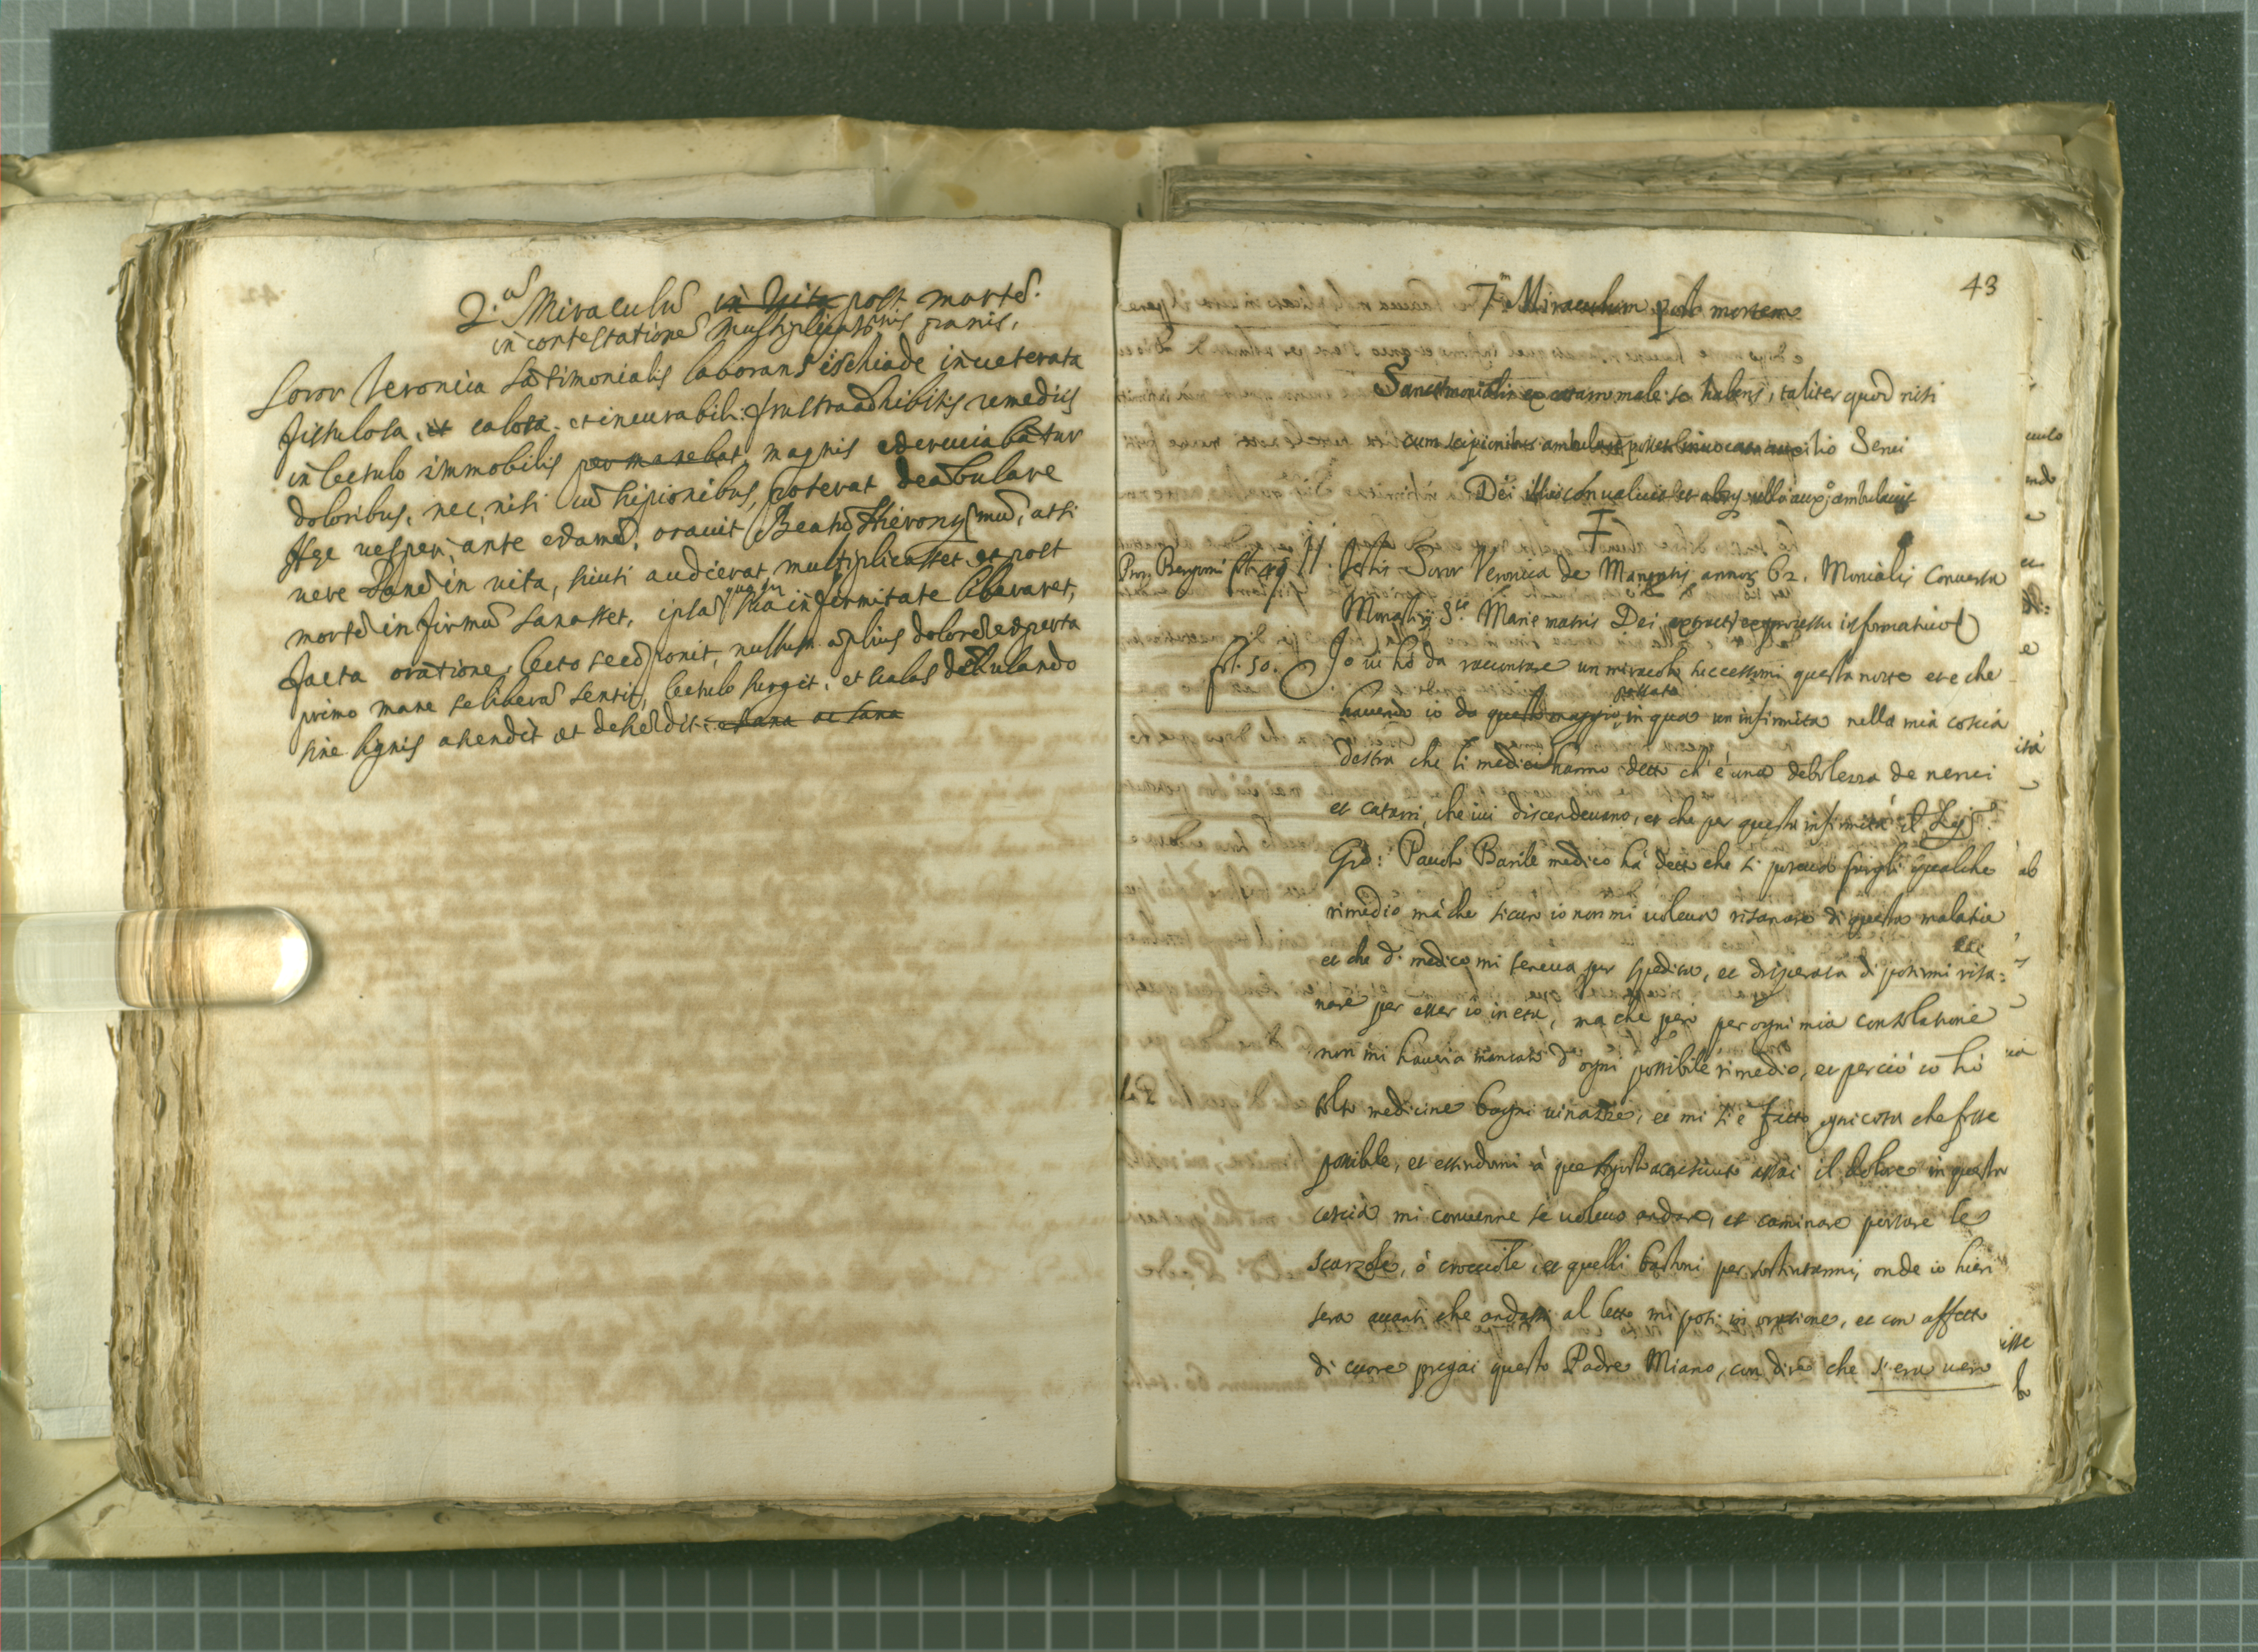 2.us Miraculũ in Vita post mortẽ.
in contestationẽ multiplicationis panis.
Soror Veronica sãtimonialis laborans ischiade inveterata
fistulosa, et calosa. et incurabili: frustra adhibitis remediis
in lectulo immobilis permanebat magnis excruciabatur
doloribus, nec, nisi cũ scipionibus, poterat deãbulare
vesperi, ante orauit Beatũ Hieronymũ, ut si
vere panẽ in uita, sicuti audierat multiplicasset, et post
mortẽ infirmũ sanasset, ipsã quoque sua infirmitate liberaret,
facta oratione, lecto sese ponit, nullum ãplius dolorẽ experta
primo mane se liberã sentit, lectulo surgit, et scalas deãbulando
sine lignis ascendit et descẽdit: sana
43
7.m Miraculum post mortem
Sanctimonialis male se habens, taliter quod nisi
cum scipionibus ambulare posset invocato auxilio Serui
Dei illico conualuit et absq; ullo aux.o ambulauit
Proc. Bergomi fol. 49 11. Testis Soror Veronica de Manentis annor. 62. Monialis Conuersa
Monasterij S.te Marie matris Dei ex processu informatiuo
fol. 50. Io ui hò da raccontare un miracolo successomi questa notte et e che
passata
hauendo io da quello maggio, in qua un infirmità nella mia coscia
destra che li medici hanno detto ch' è una debolezza de nerui
et catarri, che iui discendeuano, et che per questa infirmità il
Gio: Paulo Barile medico hà detto che si poteua fargli qualche
rimedio mà che sicuro io non mi uoleua risanare di questa malatia
et che d.o medico mi teneua per spedita, et disperata di potermi risa=
nare per esser io in età, ma che però per ogni mia consolatione
non mi haueria mancato d' ogni possibile rimedio, et perciò io hò
tolto medicine bagni uinazze, et mi si è fatto ogni cosa che fosse
possibile, et essendomi à questo accresciuto assai il dolore in questa
coscia mi conuenne se uoleuo andare, et caminare portare le
scarzole, ò crocciole, et quelli bastoni per sostentarmi, onde io hieri
sera auanti che andassi al letto mi posi in oratione, et con affetto
di cuore pregai questo Padre Miano, con dire che s' era uero